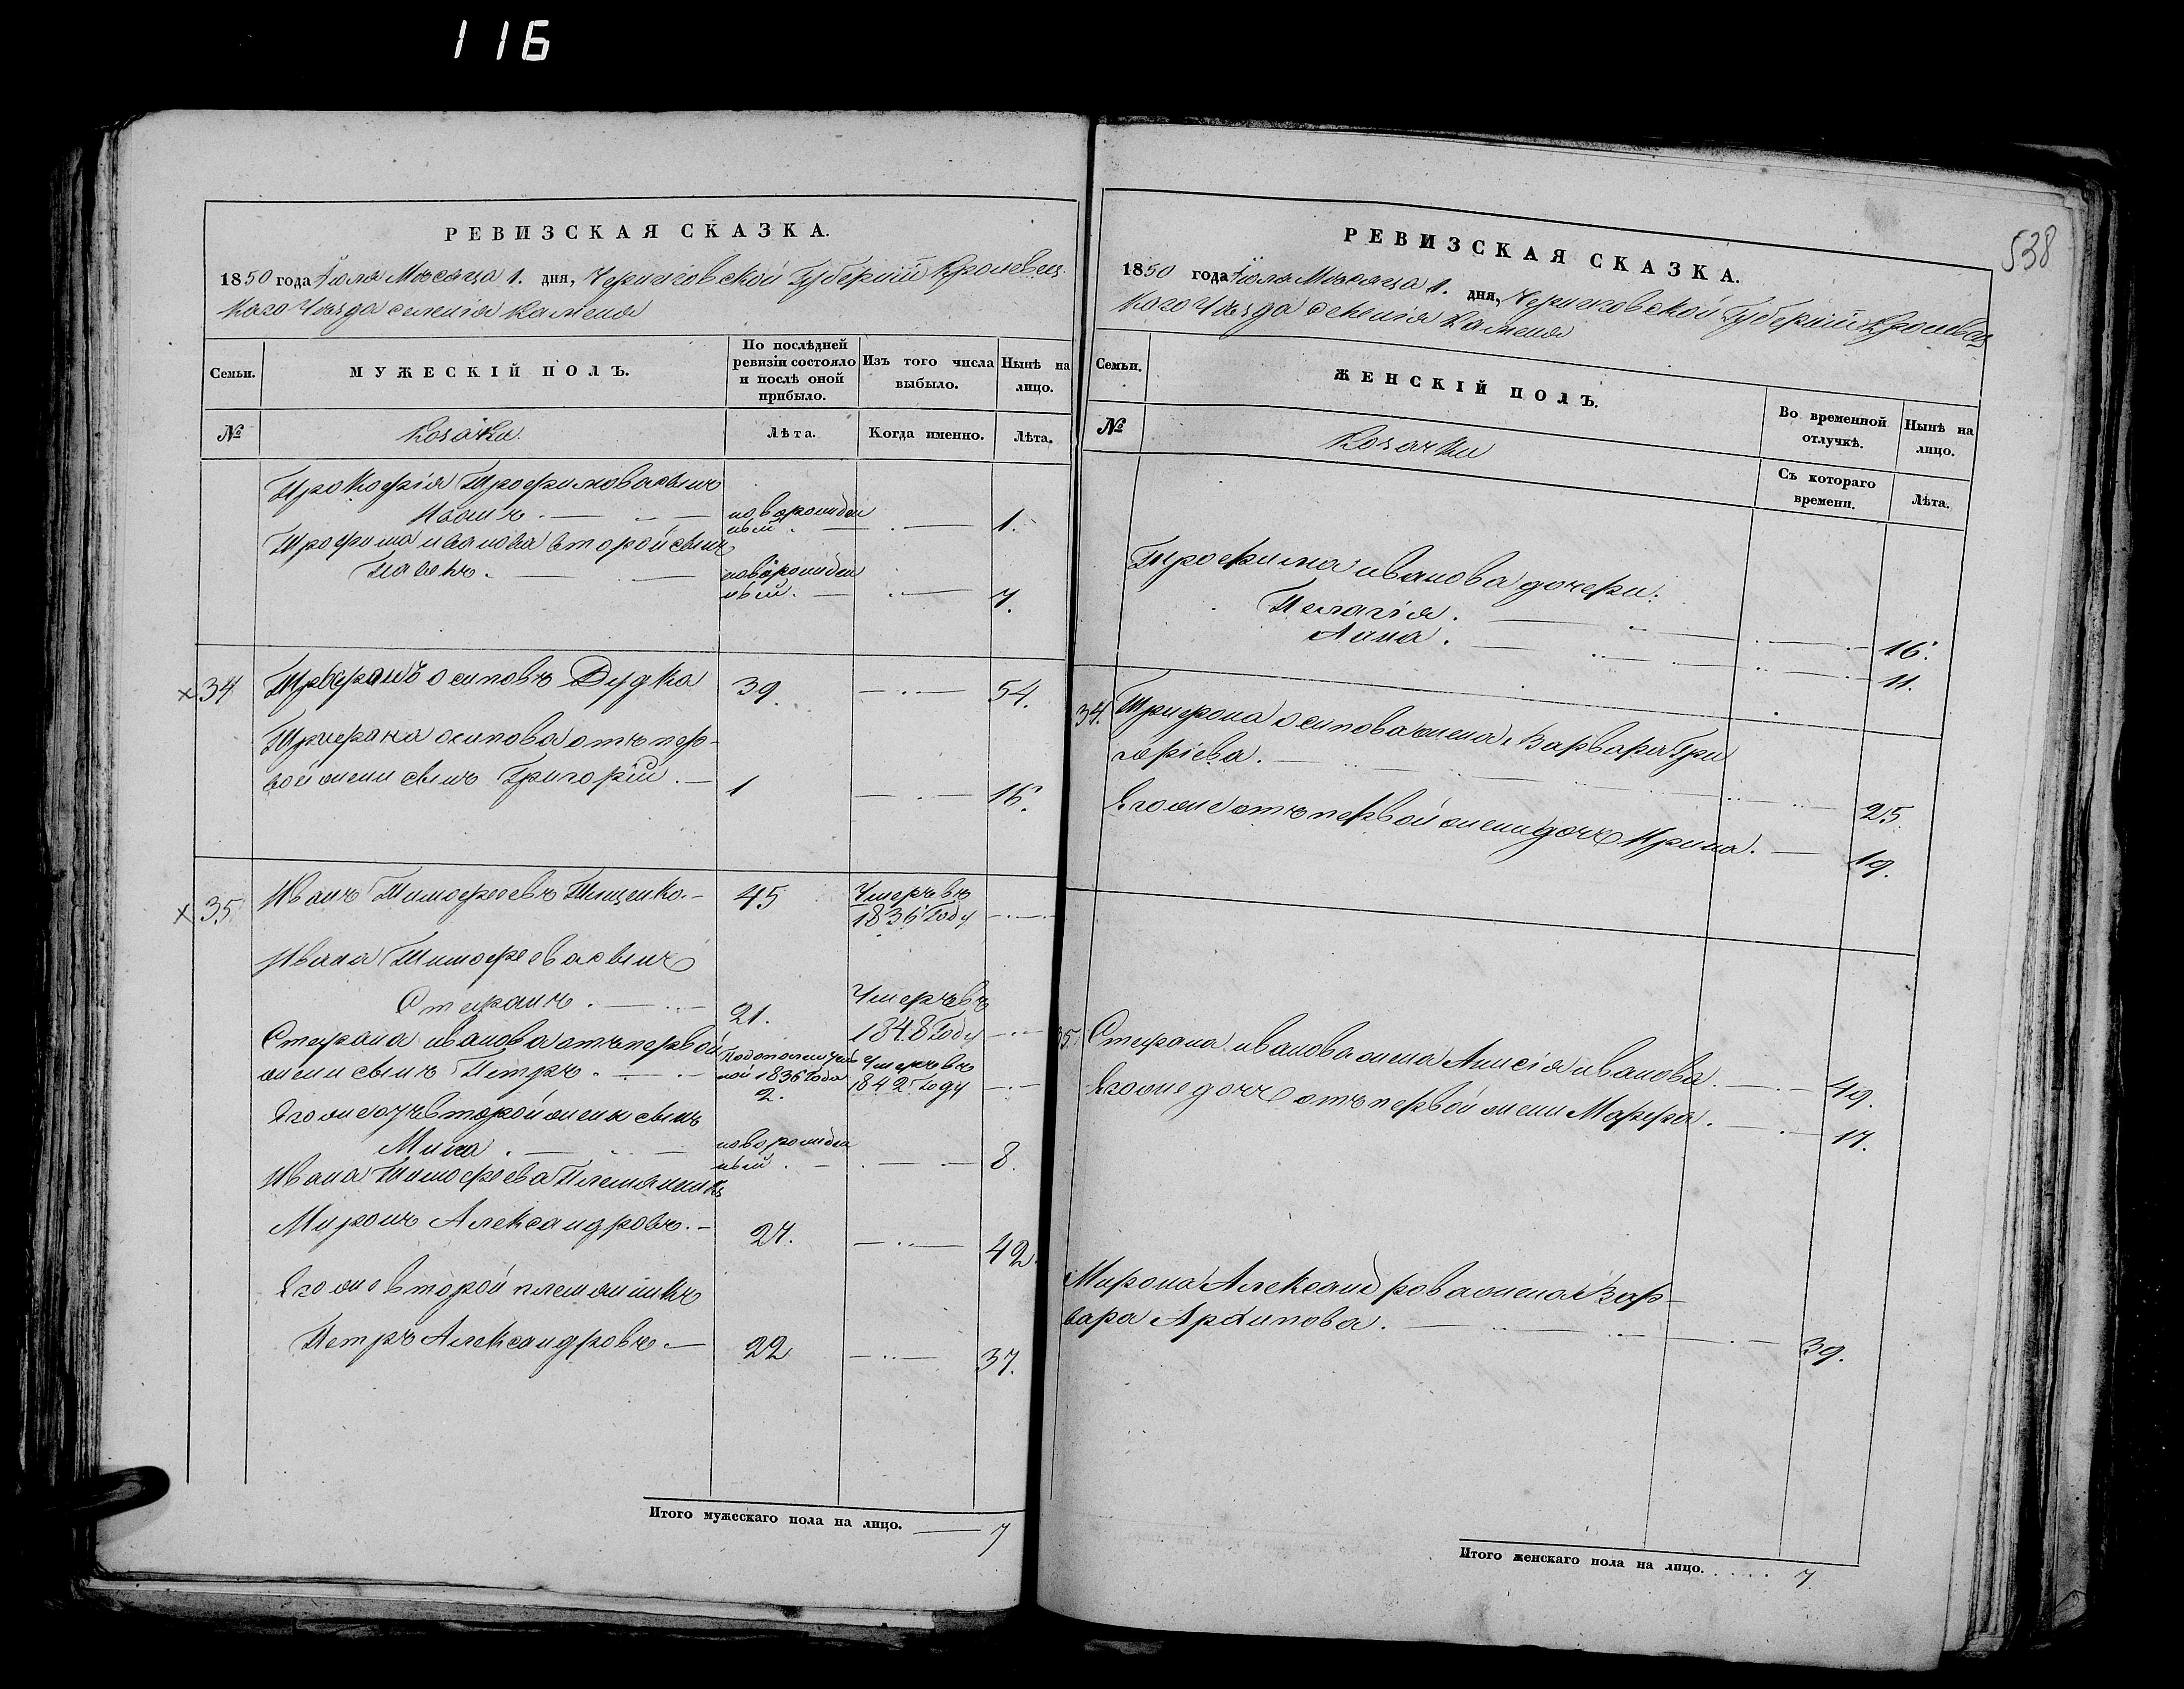 116
РЕВИЗСКАЯ СКАЗКА.
1850 года Іюля Мѣсяца 1. дня, Черниговской Губерніи Кролевец
каго Уѣзда селенія Каменя
Семьи.
МУЖЕСКІЙ ПОЛЪ.
По послѣдней ревизіи состояло и послѣ оной прибыло.
Изъ того числа выбыло.
Нынѣ на лицо.
№
Козаки.
Лѣта.
Когда именно.
Лѣта.
Прокофія Трофимова сынъ
Иванъ . новорожден
ный . 1.
Трофима иванова второй сынъ
Павелъ . новорожден
ный . 7.
34 Трифонъ осиповъ Дудка 39. 54.
Трифона осипова отъ пер-
вой жены сынъ Григорій . 1 16.
35 Иванъ Тимофеевъ Тищенко. 45 Умеръ въ
1836 Году
Ивана Тимофеева сынъ
Стефанъ . 21. Умеръ въ
1848 Году
Стефана иванова отъ первой
жены сынъ Петръ . 2. Умеръ въ
1836 Года 1842 Году
Его же отъ второй жены сынъ
Мина . новорожден
ный . 8.
Ивана Тимофеева Племянникъ
Миронъ Александровъ. 27. 42.
Его же второй племянникъ
Петръ Александровъ. 22 37.
Итого мужескаго пола на лицо. 7
538
РЕВИЗСКАЯ СКАЗКА.
1850 года Іюля Мѣсяца 1. дня, Черниговской Губерніи Кролевец
каго Уѣзда селенія Каменя
Семьи.
ЖЕНСКІЙ ПОЛЪ.
Во временной отлучкѣ.
Нынѣ на лицо.
№
Козачки
Съ котораго времени.
Лѣта.
Трофима иванова дочери:
Пелагія . 16.
Анна . 11.
34. Трифона осипова жена Варвара Гри
горіева . 25.
Его же отъ первой жены дочь Ирина . 19.
35. Стефана иванова жена Анисія иванова . 49.
Его же дочь отъ первой жены Марфа . 17.
Мирона Александрова жена Вар-
вара Архипова . 39.
Итого женскаго пола на лицо. 7.